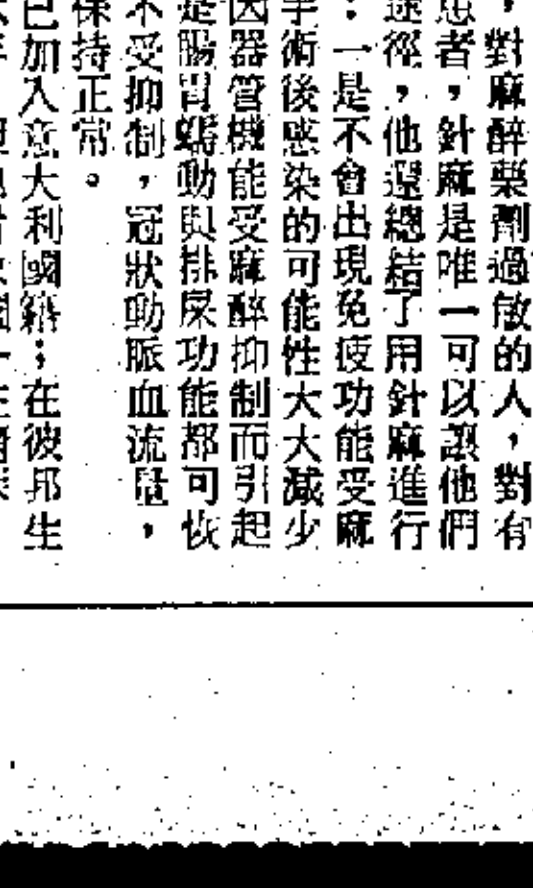 ，對麻醉藥劑過敏的人，對有
患者，針麻是唯一可以讓他們
途徑，他還總結了用針麻進行
：一是不會出現免疫功能受麻
手術後感染的可能性大大減少
因器管機能受麻醉抑制而引起
是腸胃蠕動與排尿功能都可恢
不受抑制，冠狀動脈血流量，
保持正常。
已加入意大利國籍；在彼邦生